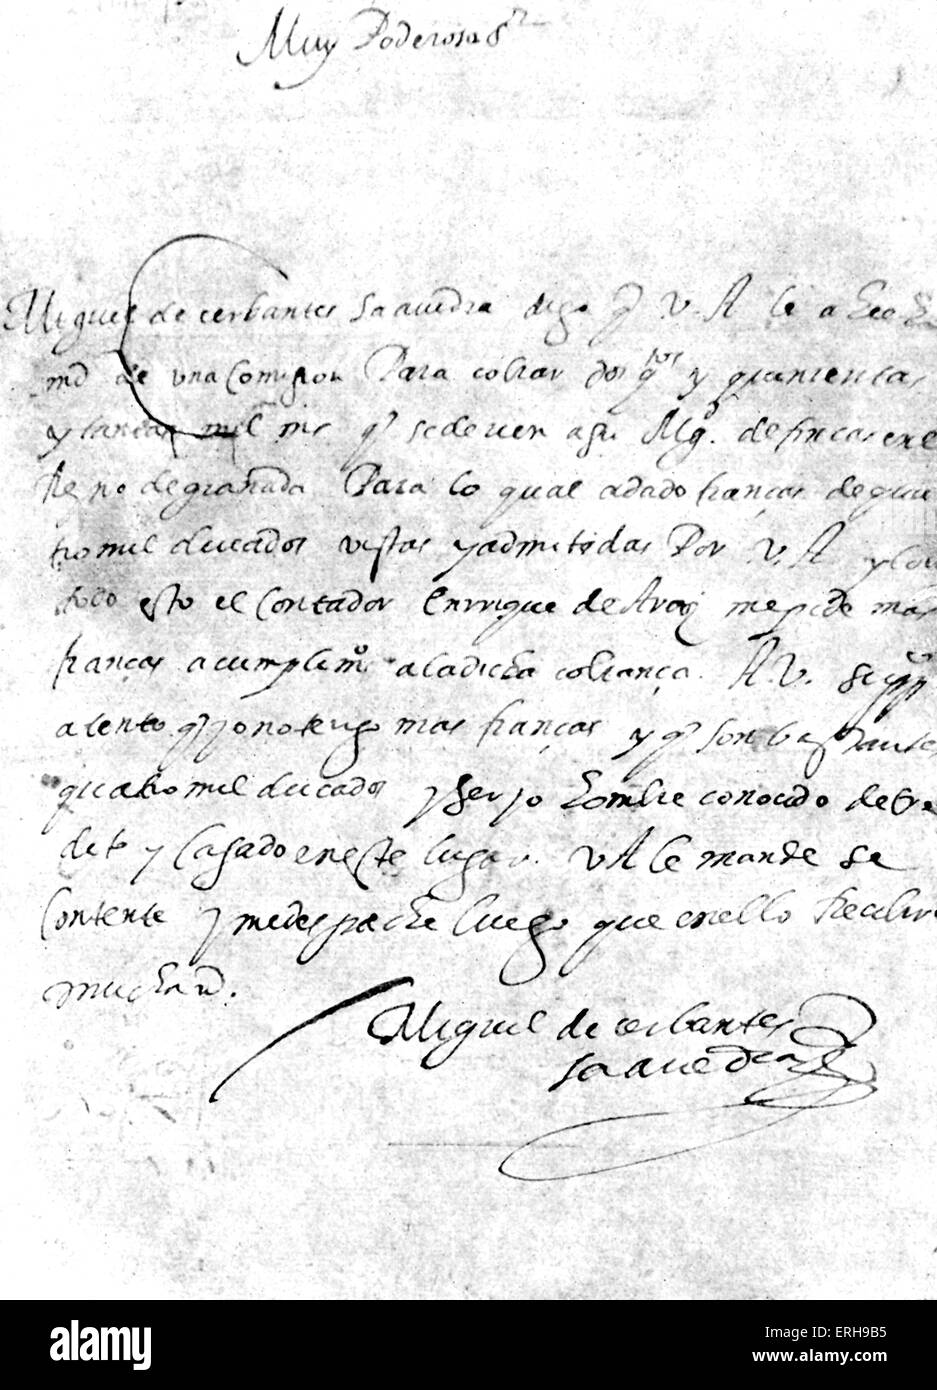 Muy Poderoso Sr
Miguel de cerbantes Saavedra digo q V. A. le a hecho
md de una Comision Para cobrar dos qos y quinientas
y tantas mil ms q se deuen a su Mgd. de fincas en el
Reyno de granada Para lo qual a dado fianças de qua
tro mil ducados vistas y admitidas Por V. A. y con
todo esto el Contador Enrrique de Araiz me pide mas
fianças a cumplimo a la dicha cobrança. A V. A. suppco
atento q yo no tengo mas fianças y q son bastantes
quatro mil ducados y ser yo hombre conocido de cre
dito y Casado en este lugar. V A le mande se
Contente y me despache luego que en ello Recibire
mucha md.
Miguel de cerbantes
Saavedra
alamy
Image ID: ERH9B5
www.alamy.com